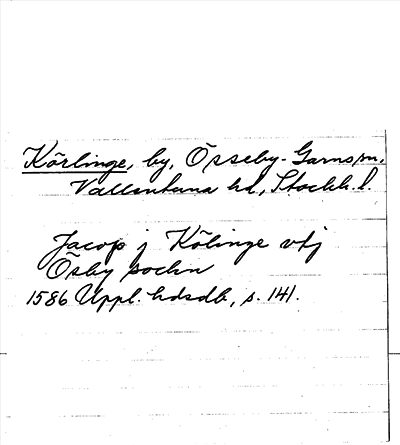 Körlinge, by, Össeby-Garns sn,
Vallentuna hd, Stockh. l.
Jacop j Kölinge vtj
Ösby sochn
1586 Uppl. hdsdb, s. 141.